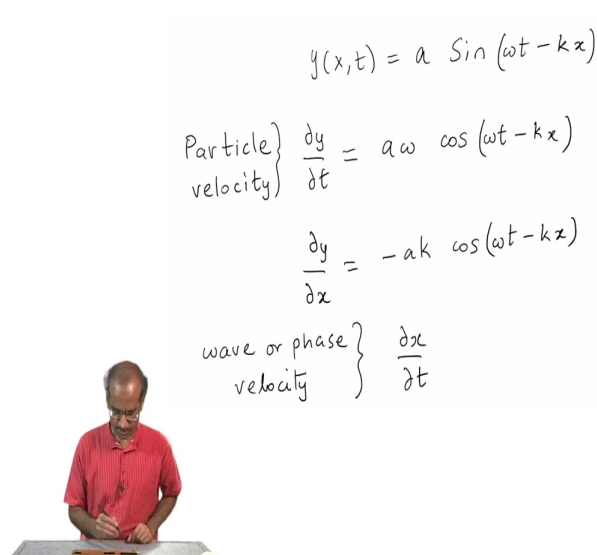 y(x,t) = a Sin (ωt - kx)
Particle velocity } ∂y/∂t = aω cos (ωt - kx)
∂y/∂x = -ak cos (ωt - kx)
wave or phase velocity } ∂x/∂t